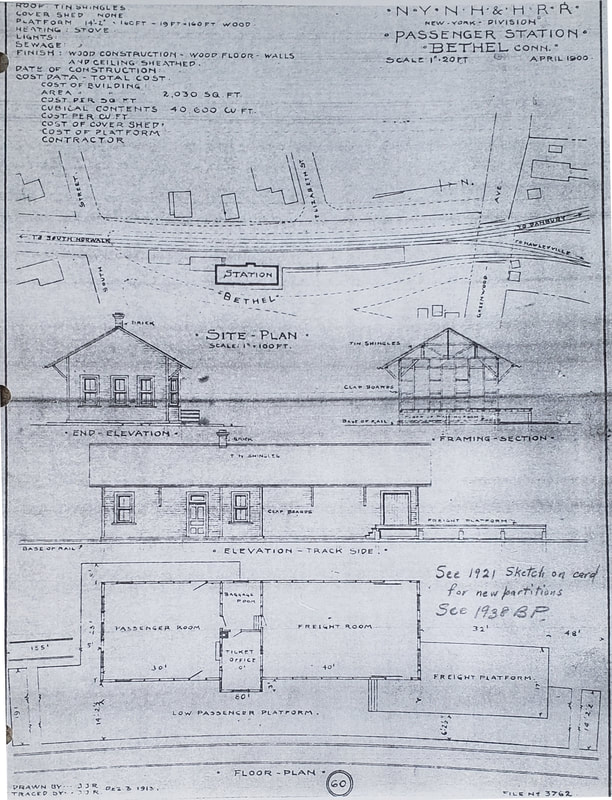 ROOF: TIN SHINGLES
COVER SHED: NONE
PLATFORM 14'-2" × 160 FT - 19 FT × 160 FT WOOD.
HEATING: STOVE
LIGHTS:
SEWAGE:
FINISH: WOOD CONSTRUCTION - WOOD FLOOR - WALLS
AND CEILING SHEATHED.
DATE OF CONSTRUCTION
COST DATA - TOTAL COST.
COST OF BUILDING
AREA 2,030 SQ FT.
COST PER SQ FT
CUBICAL CONTENTS 40,600 CU FT.
COST PER CU FT.
COST OF COVER SHED
COST OF PLATFORM
CONTRACTOR
N·Y·N·H·&·H·R·R·
NEW-YORK-DIVISION
PASSENGER STATION
BETHEL CONN.
SCALE 1"=20FT. APRIL 1900
STREET.
ELIZABETH ST
N.
AVE
TO DANBURY
TO SOUTH NORWALK
TO HAWLEYVILLE
STATION
BETHEL
SOUTH
GREENWOOD
SITE-PLAN
SCALE: 1"=100FT.
BRICK
TIN SHINGLES
CLAP BOARDS
BASE OF RAIL
END-ELEVATION
FRAMING-SECTION
BRICK
TIN SHINGLES
CLAP BOARDS
FREIGHT PLATFORM
BASE OF RAIL
ELEVATION-TRACK SIDE.
See 1921 Sketch on card
for new partitions
See 1938 B.P.
BAGGAGE
ROOM
PASSENGER ROOM
FREIGHT ROOM
TICKET
OFFICE
30'
40'
60'
32'
48'
155'
FREIGHT PLATFORM
LOW PASSENGER PLATFORM.
FLOOR-PLAN
60
DRAWN BY--- JJR DEC 3 1913.
TRACED BY--- JJR
FILE Nº 3762